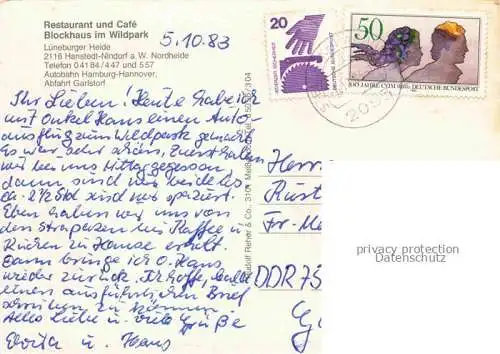 Restaurant und Café
Blockhaus im Wildpark
Lüneburger Heide
2116 Hanstedt-Nindorf a. W. Nordheide
Telefon 04184 / 447 und 557
Autobahn Hamburg-Hannover,
Abfahrt Garlstorf
5.10.83
Ihr Lieben! Heute habe ich
mit Onkel Hans einen Auto-
ausflug zum Wildpark gemacht.
Es war sehr schön, Zuerst haben
wir hier zu Mittag gegessen
dann sind wir beide
ca. 2 ½ Std spaziert.
Eben haben wir uns von
den Strapazen bei Kaffee u
Kuchen zu Hause erholt.
Dann bringe ich O. Hans
wieder zurück. Ich hoffe, bald
einen ausführlichen Brief
schreiben zu können.
Alles Liebe u. viele Grüße
u. Hans
Rudolf Reher & Co., 3101
20
DEUTSCHE BUNDESPOST
50
DEUTSCHE BUNDESPOST
Herr
Fr.-Me
DDR 75
privacy protection
Datenschutz